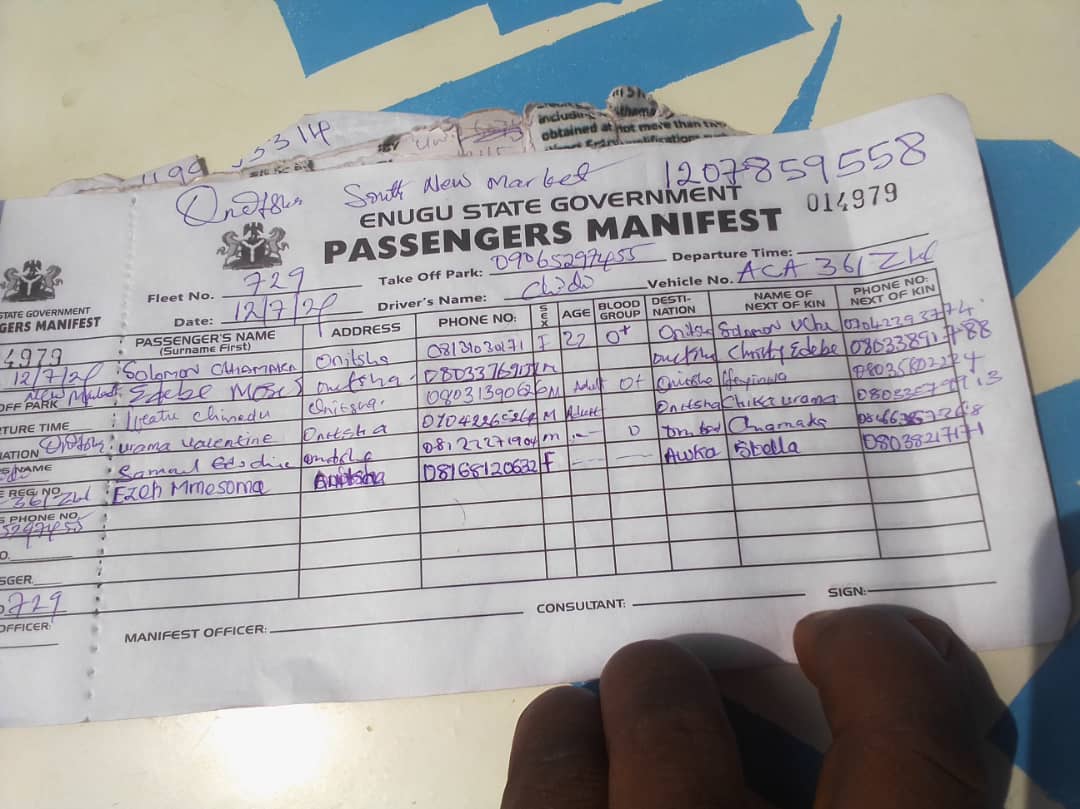 3314
1199
including
obtained at not more than
Onitsha South New Market 12078595558
ENUGU STATE GOVERNMENT 014979
PASSENGERS MANIFEST
Fleet No. 729 Take Off Park: 09065297455 Departure Time:
Date: 12/7/24 Driver's Name: Chidi Vehicle No. ACA 361ZW
PASSENGER'S NAME (Surname First) ADDRESS PHONE NO: SEX AGE BLOOD GROUP DESTI-NATION NAME OF NEXT OF KIN PHONE NO: NEXT OF KIN
SOLOMON CHIAMAKA Onitsha 08131030171 F 22 O+ Onitsha Solomon Uche 07042293774
Edebe Moses Onitsha 08033769 M Onitsha Christy Edebe
Chinedu Onitsha M Adult O+ Onitsha Ifeyinwa
Urama Valentine Onitsha M Adult Onitsha Chika Urama
Samuel Onitsha 08122271904 M O Chiamaka
Ezeh Mmesoma Onitsha 08168120632 F Awka Stella 08038217171
MANIFEST OFFICER: CONSULTANT: SIGN:
STATE GOVERNMENT
GERS MANIFEST
4979
12/7/24
OFF PARK New Market
RTURE TIME
NATION Onitsha
S NAME
E REG. NO.
361ZW
S PHONE NO.
5297455
O.
SGER
729
OFFICER: